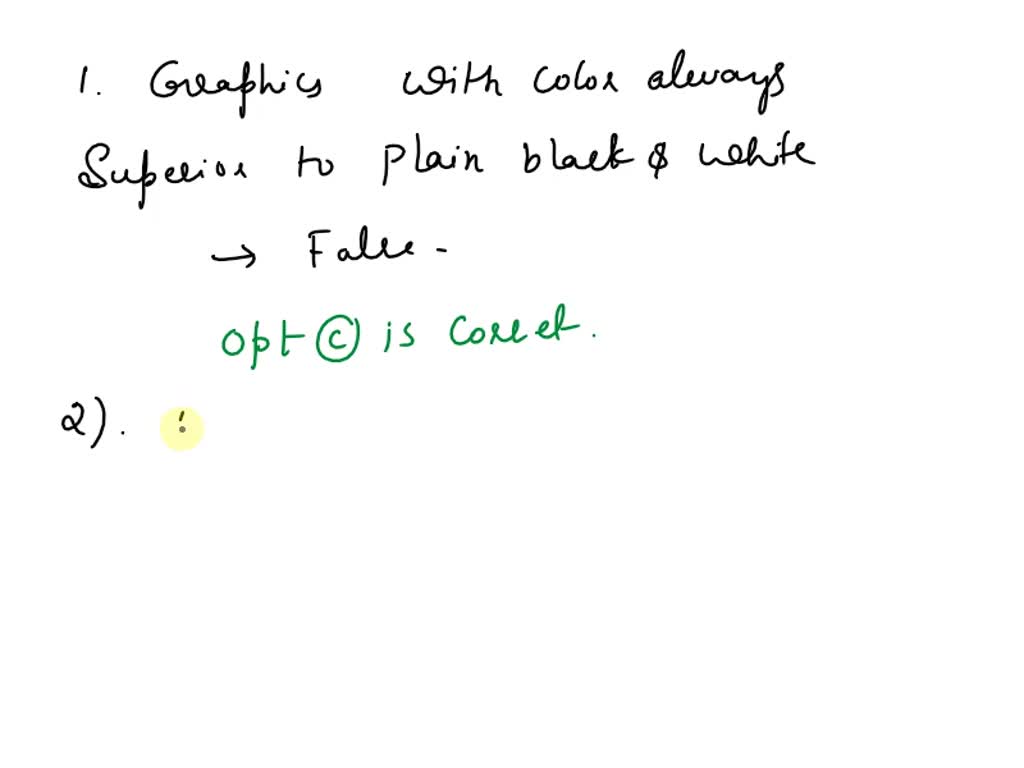 1. Graphics with color always
Superior to plain black & white
→ False -
opt ⓒ is correct.
2).